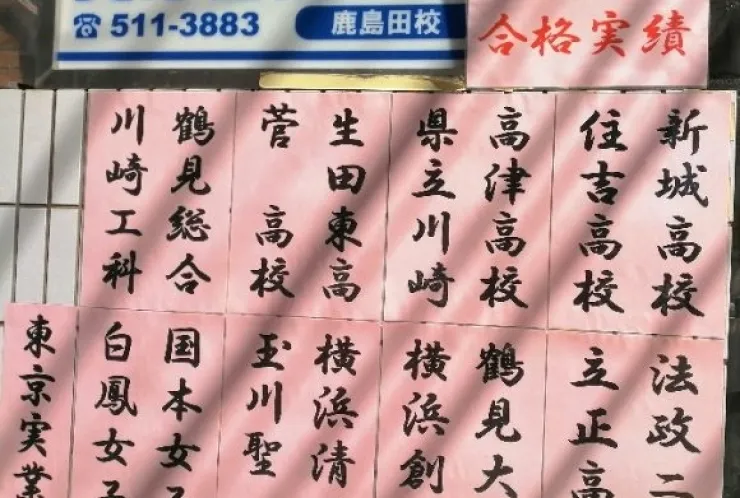 ☎511-3883
鹿島田校
合格実績
新城高校
住吉高校
高津高校
県立川崎
生田東高
菅高校
鶴見総合
川崎工科
法政二
立正高
鶴見大
横浜創
横浜清
玉川聖
国本女子
白鳳女子
東京実業